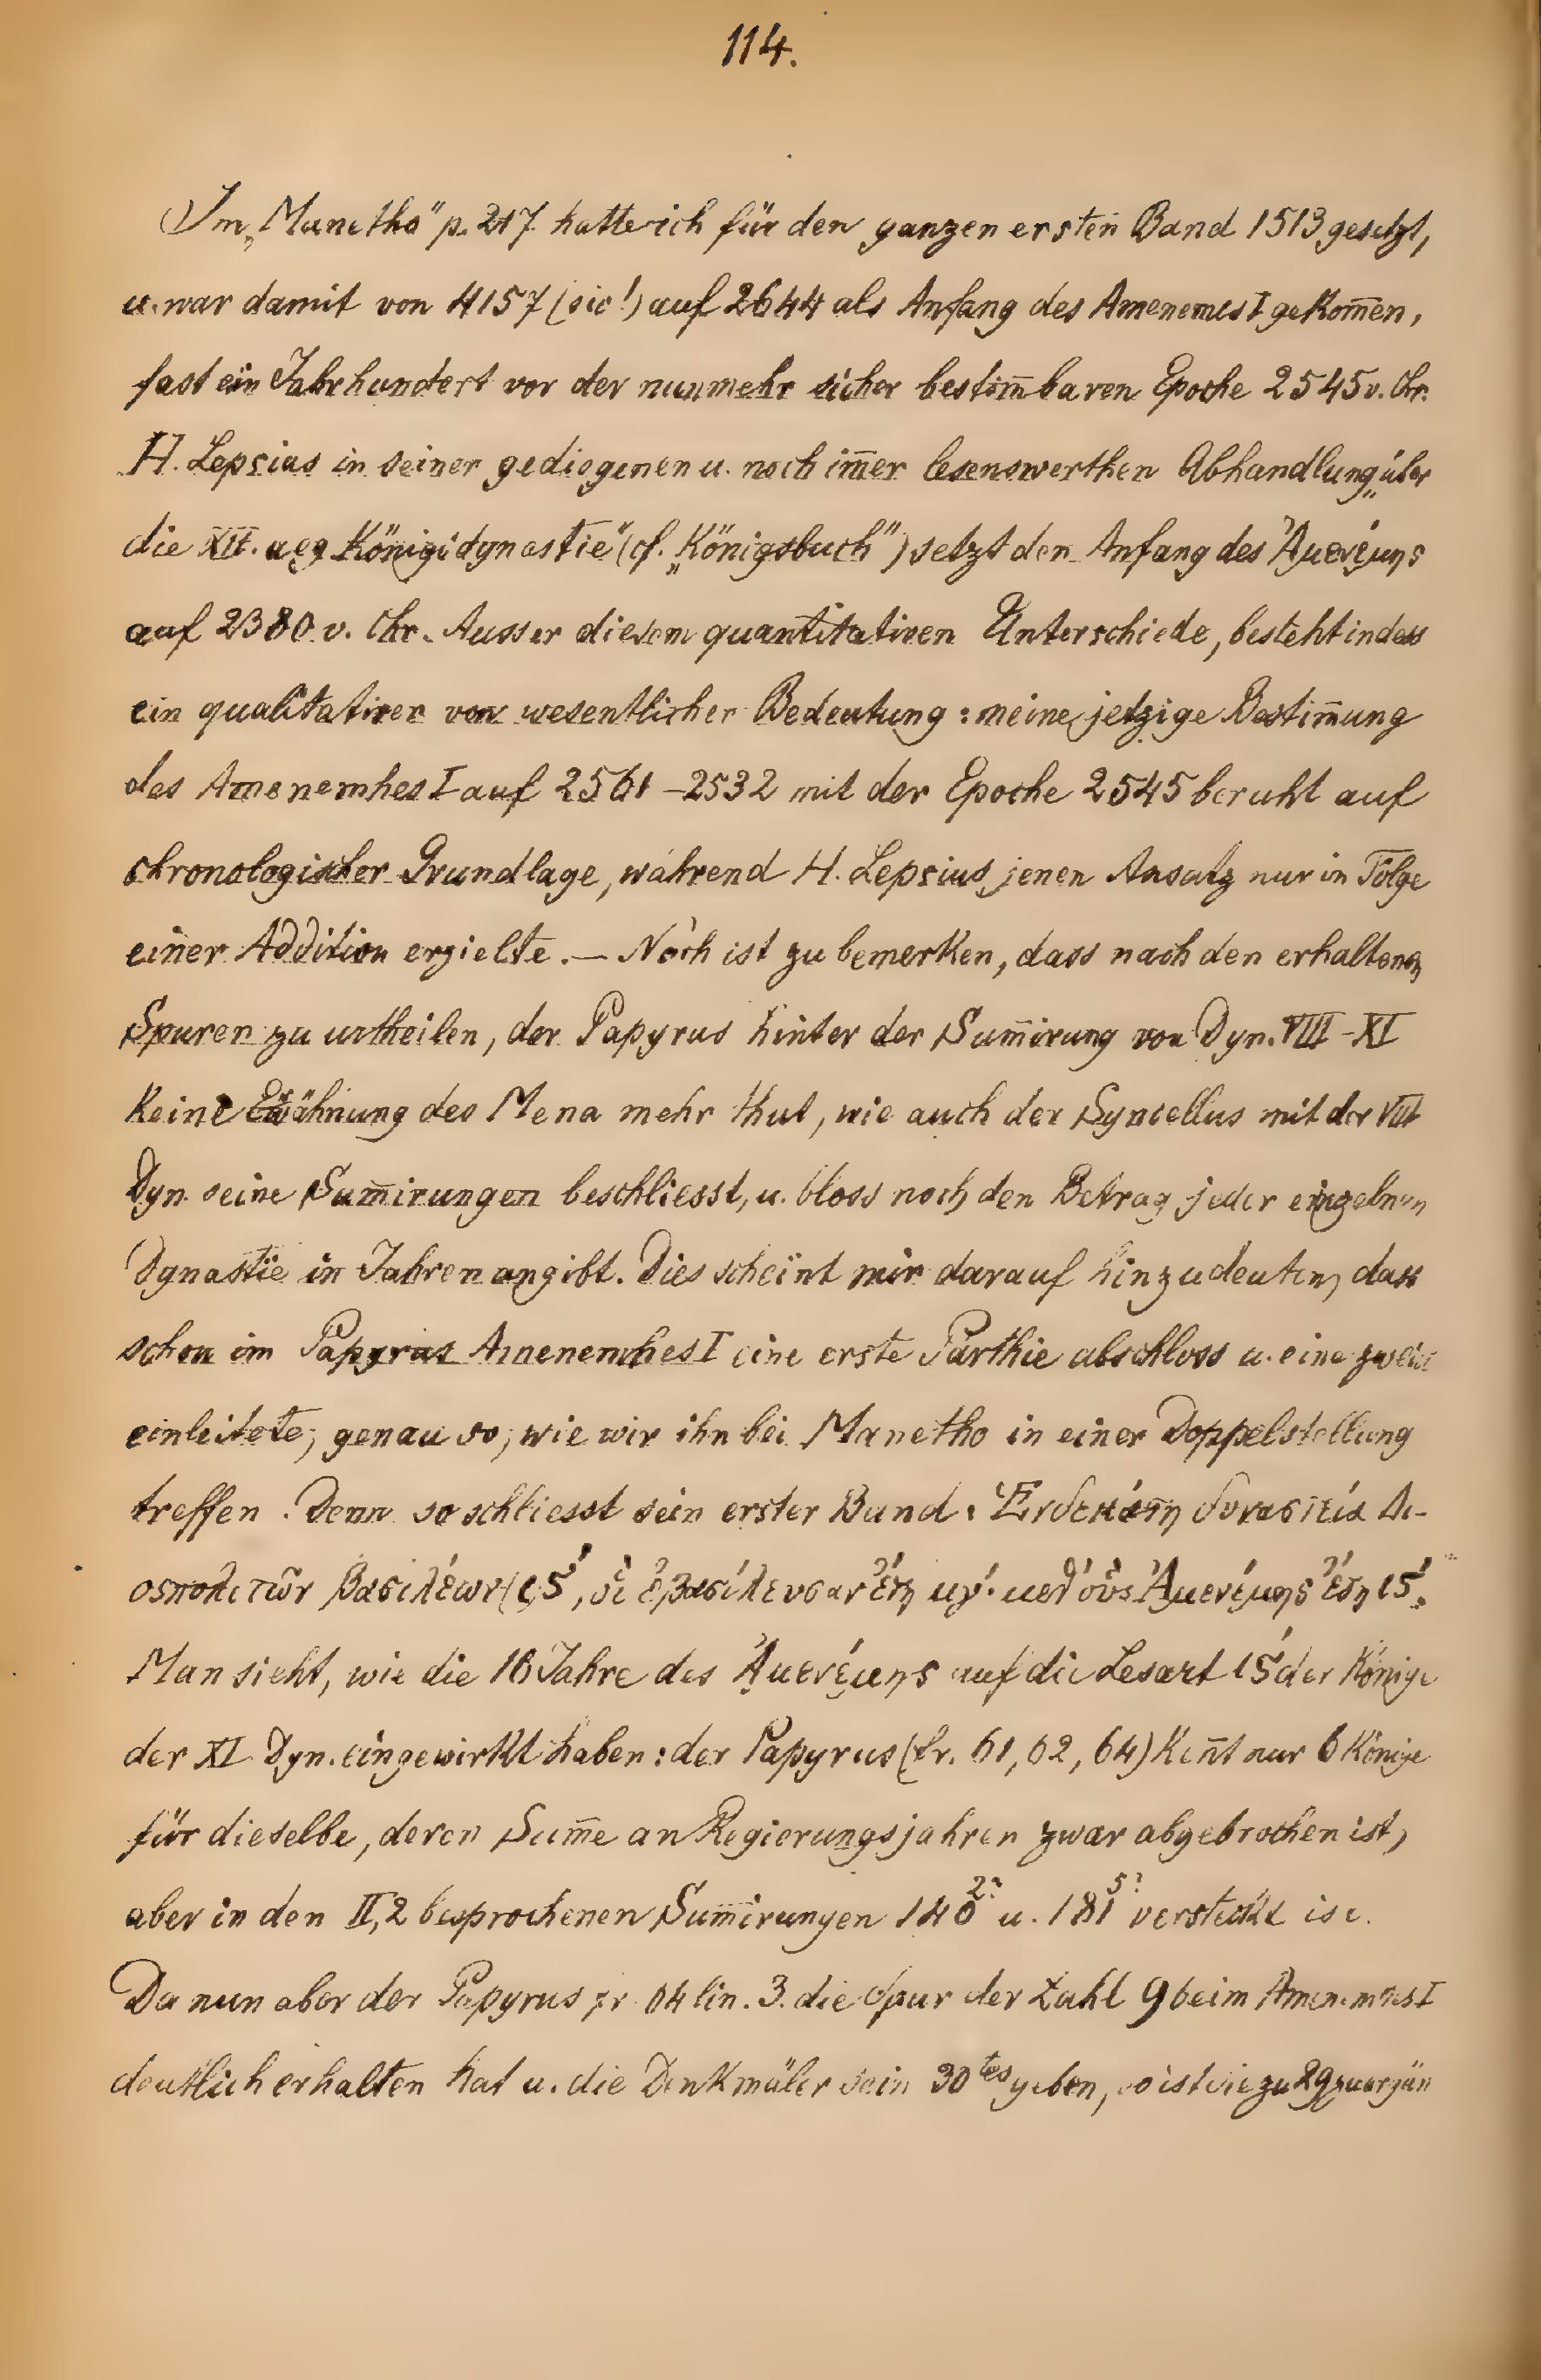 114.
Im „Manetho" p. 217 hatte ich für den ganzen ersten Band 1513 gesetzt,
u. war damit von 4157 (sic!) auf 2644 als Anfang des Amenemes I gekom̄en,
fast ein Jahrhundert vor der nunmehr sicher bestim̄baren Epoche 2545 v. Chr.
H. Lepsius in seiner gediegenen u. noch im̄er lesenswerthen Abhandlung „über
die XII. aeg Königsdynastie" (cf. „Königsbuch") setzt den Anfang des Ἀμενέμης
auf 2380 v. Chr. Ausser diesem quantitativen Unterschiede, besteht indess
ein qualitativer von wesentlicher Bedeutung: meine jetzige Bestim̄ung
des Amenemhes I auf 2561–2532 mit der Epoche 2545 beruht auf
chronologischer Grundlage, während H. Lepsius jenen Ansatz nur in Folge
einer Addition erzielte. — Noch ist zu bemerken, dass nach den erhaltenen
Spuren zu urtheilen, der Papyrus hinter der Sum̄irung von Dyn. VIII–XI
keine Erwähnung des Mena mehr thut, wie auch der Syncellus mit der VIII
Dyn. seine Sum̄irungen beschliesst, u. bloss noch den Betrag jeder einzelnen
Dynastie in Jahren angibt. Dies scheint mir darauf hinzudeuten, dass
schon im Papyrus Amenemhes I eine erste Parthie abschloss u. eine zweite
einleitete, genau so, wie wir ihn bei Manetho in einer Doppelstellung
treffen. Denn so schliesst sein erster Band: Ἑνδεκάτη δυναστεία Δι-
οσπολιτῶν βασιλέων ις', οἳ ἐβασίλευσαν ἔτη μγ'. μεθ' οὓς Ἀμενέμης ἔτη ις'.
Man sieht, wie die 16 Jahre des Ἀμενέμης auf die Lesart ις' der Könige
der XI Dyn. eingewirkt haben: der Papyrus (fr. 61, 62, 64) ken̄t nur 6 Könige
für dieselbe, deren Sum̄e an Regierungsjahren zwar abgebrochen ist,
aber in den II, 2 besprochenen Sum̄irungen 140 2? u. 181 5? versteckt ist.
Da nun aber der Papyrus fr. 64 lin. 3. die Spur der Zahl 9 beim Amenemhes I
deutlich erhalten hat u. die Denkmäler sein 30tes geben, so ist sie zu 29 zu ergän